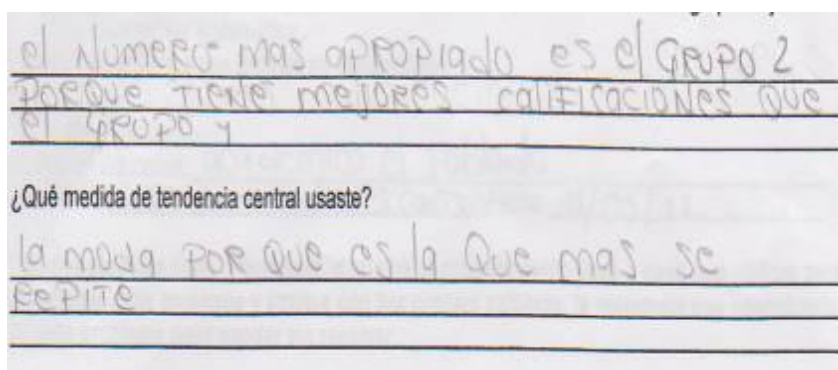 el Numero mas apropiado es el GRUPO 2
PORQUE TIENE mejores calificaciones QUE
el GRUPO y
¿Qué medida de tendencia central usaste?
la moda POR QUE es la Que mas se
REPITE